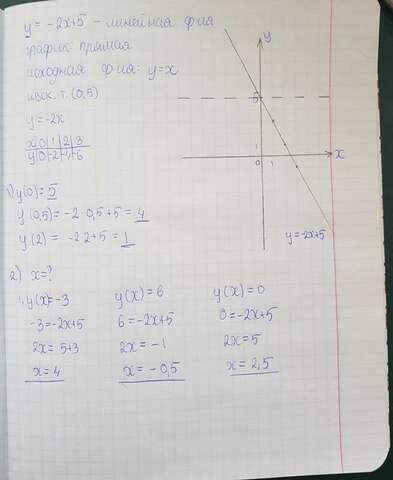 y = -2x+5 - линейная ф-ия
график прямая
исходная ф-ия: y=x
нвск. т. (0,5)
y = -2x
x|0|1|2|3
y|0|-2|-4|-6
y
5
1
0 1
x
y=-2x+5
1) y(0)= 5
y(0,5)= -2·0,5+5= 4
y(2)= -2·2+5= 1
2) x=?
y(x)=-3 y(x)=6 y(x)=0
-3=-2x+5 6=-2x+5 0=-2x+5
2x= 5+3 2x= -1 2x= 5
x= 4 x= -0,5 x= 2,5